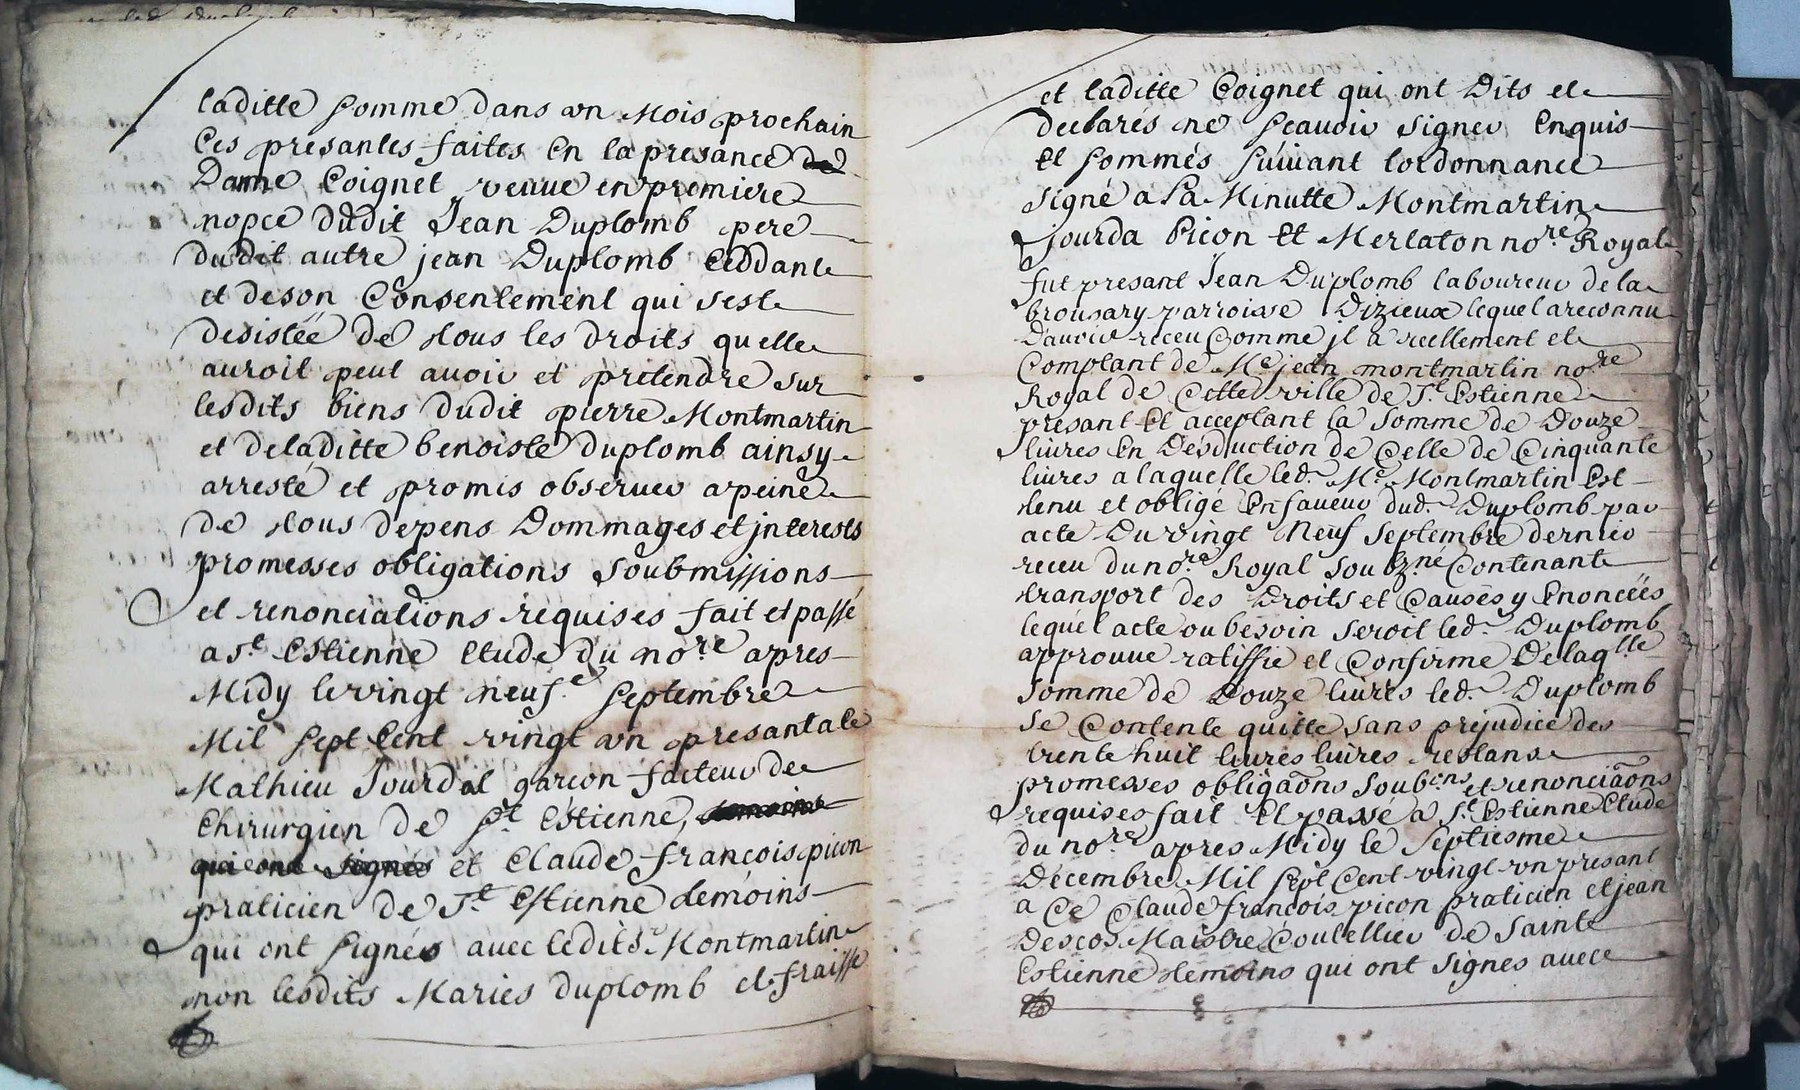 laditte somme dans un mois prochain
Ces presantes faites en la presance
Dame Coignet veuue en premiere
nopce dudit Jean Duplomb pere
dudit autre jean Duplomb Ceddant
et de son Consentement qui sest
desistée de tous les droits quelle
auroit peut auoir et pretendre sur
lesdits biens dudit pierre Montmartin
et deladitte benoiste duplomb ainsy
arresté et promis obseruer a peine
de tous depens Dommages et jnterests
promesses obligations Soubmissions
et renonciations requises fait et passé
a St. Estienne Etude du nore. apres
Midy le vingt neufe. septembre
Mil sept Cent vingt un presant a le
Mathieu Jourdat garcon facteur de
Chirurgien de St. Estienne,
qui ont signés et Claude francois picon
praticien de St. Estienne temoins
qui ont signés auec ledit sr. Montmartin
non lesdits Maries duplomb et fraisse
et laditte Coignet qui ont Dits et
declarés ne scauoir signer Enquis
Et sommés suiuant lordonnance
signé a La Minutte Montmartin
jourda Picon Et Merlaton nore. Royal
fut presant Jean Duplomb laboureur de la
parroisse Dizieux lequel a reconnu
Dauoir receu Comme jl a reellement et
Comptant de Me. jean montmartin nore
Royal de Cette ville de St. Estienne
presant Et acceptant la somme de Douze
liures En Desduction de Celle de Cinquante
liures a laquelle led. Me. Montmartin Est
tenu et obligé En faueur dud. Duplomb par
acte Du vingt Neuf septembre dernier
receu du nore. Royal soubzné Contenant
transport des Droits et Causes y Enoncées
lequel acte ou besoin seroit led. Duplomb
approuue ratiffie et Confirme De laqlle
somme de Douze liures led. Duplomb
se Contente quitte sans prejudice des
trente huit liures liures restans
promesses obligaõns soubons et renonciaõns
requises fait Et passé a St. Estienne Etude
du nore. apres Midy le septiesme
Décembre Mil sept Cent vingt un presant
a Ce Claude francois picon praticien et jean
Descos Maistre Coutellier de saint
Estienne temoins qui ont signes auec